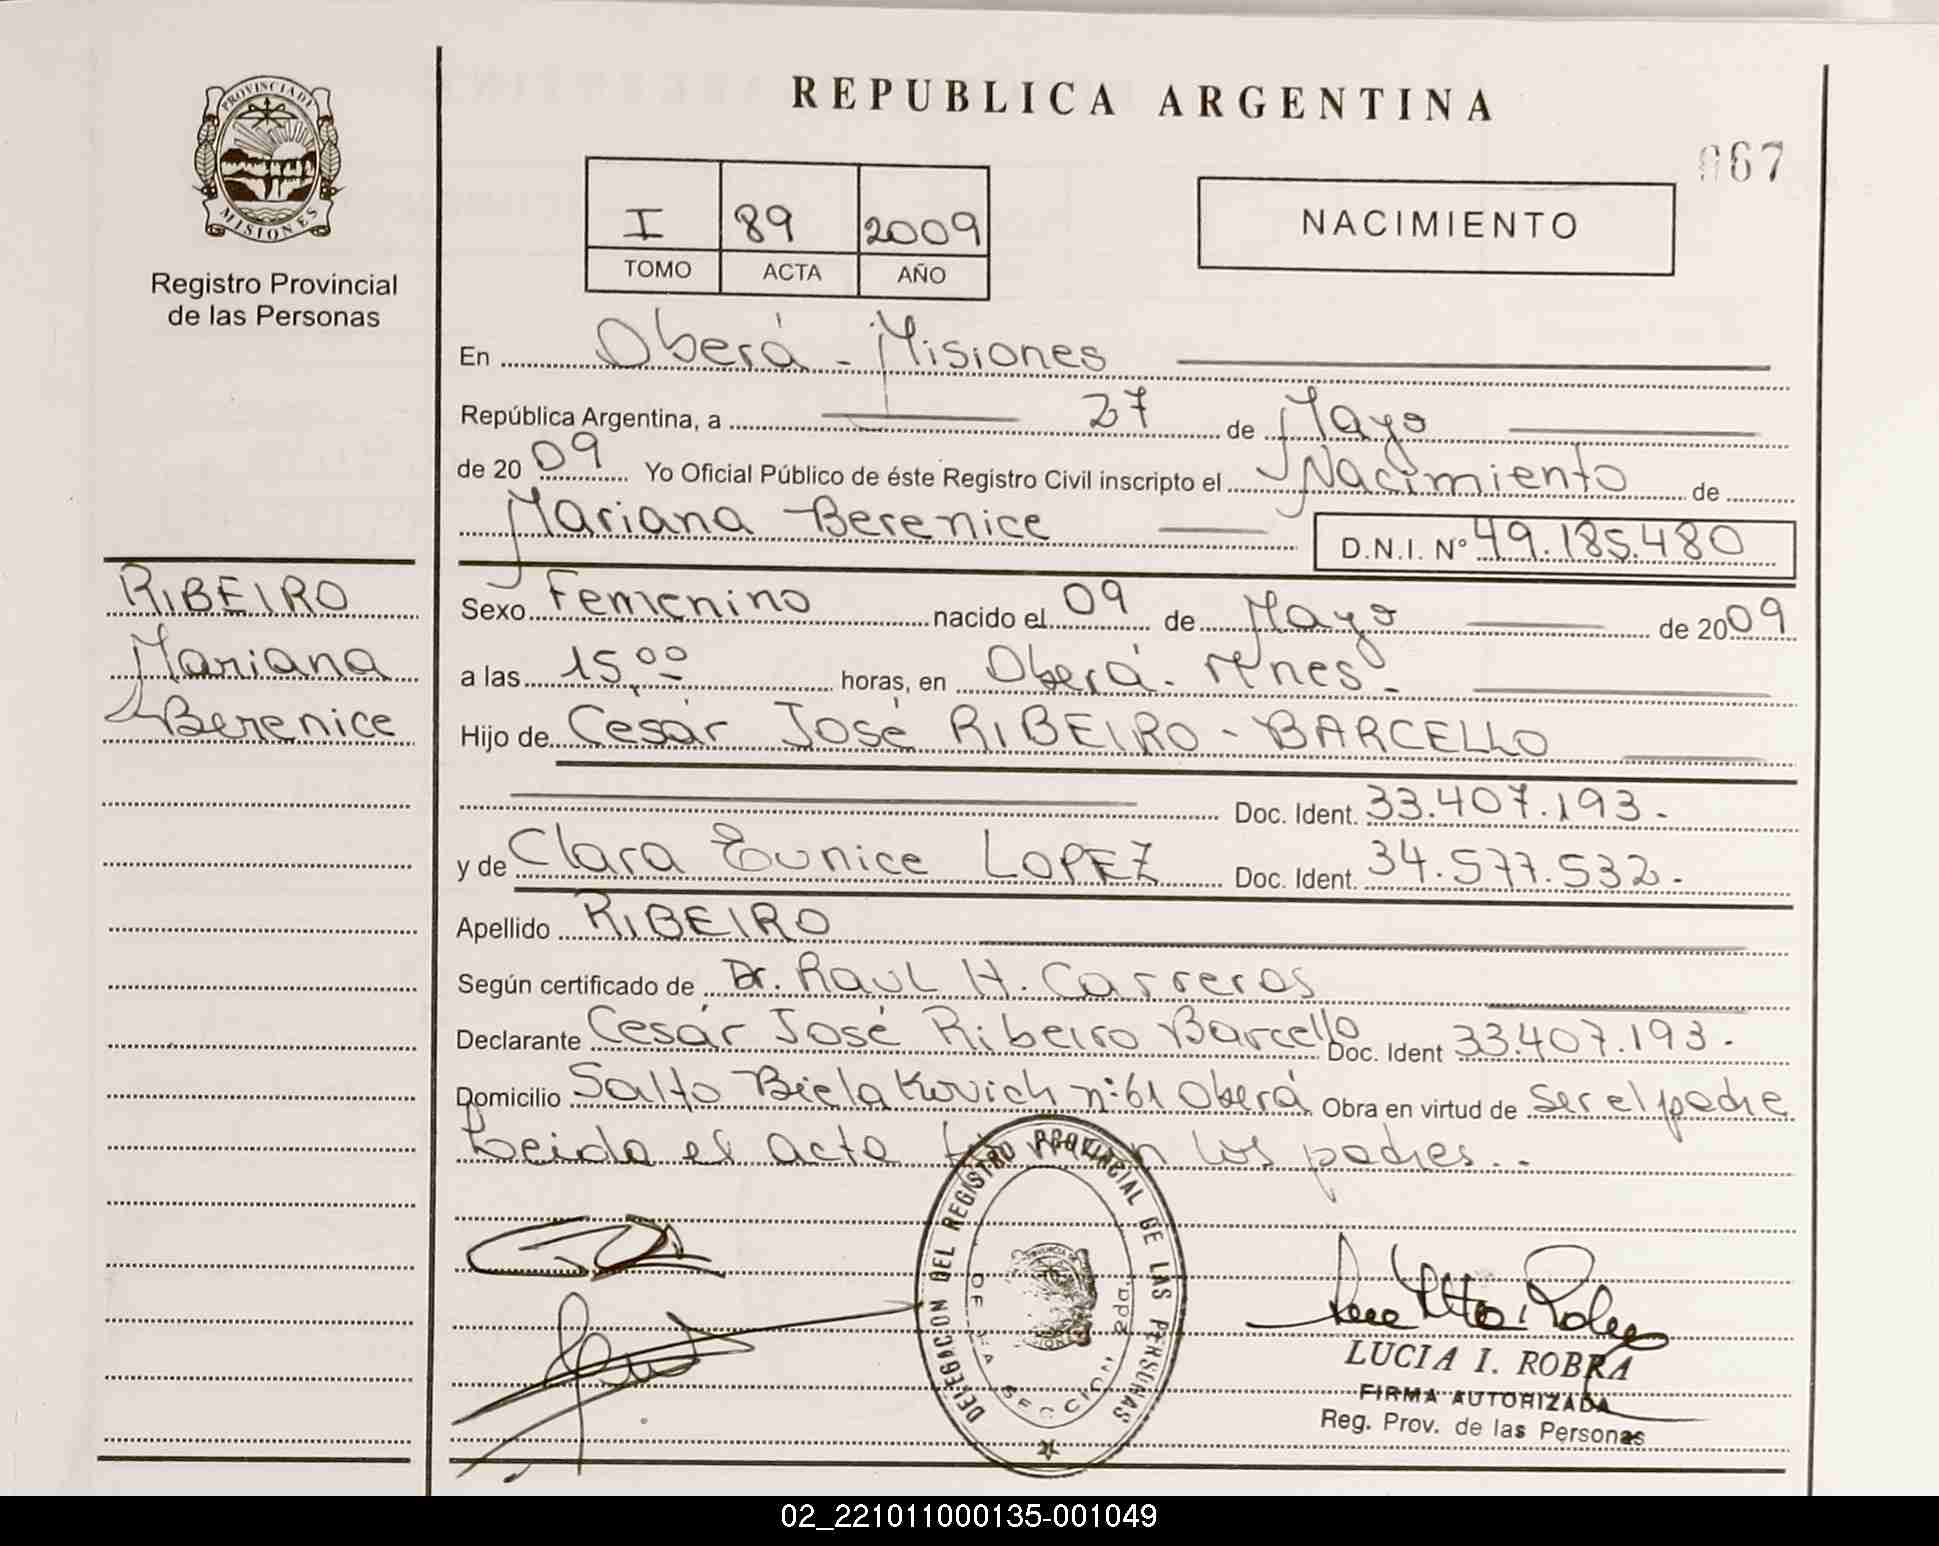 REPUBLICA ARGENTINA
067
PROVINCIA DE
MISIONES
Registro Provincial
de las Personas
I 89 2009
TOMO ACTA AÑO
NACIMIENTO
En Oberá - Misiones
República Argentina, a 27 de Mayo
de 2009 Yo Oficial Público de éste Registro Civil inscripto el Nacimiento de
Mariana Berenice D.N.I. Nº 49.185.480
RIBEIRO
Mariana
Berenice
Sexo Femenino nacido el 09 de Mayo de 2009
a las 15,00 horas, en Oberá - Mnes.
Hijo de Cesár José RIBEIRO - BARCELLO
Doc. Ident. 33.407.193.
y de Clara Eunice LOPEZ Doc. Ident. 34.577.532.
Apellido RIBEIRO
Según certificado de Dr. Raul H. Carreras
Declarante Cesár José Ribeiro Barcello Doc. Ident 33.407.193.
Domicilio Salto Bielakovich n:61 Oberá Obra en virtud de ser el padre
Leida el acta firman los padres..
DELEGACION DEL REGISTRO PROVINCIAL DE LAS PERSONAS
SECCION 2da.
LUCIA I. ROBRA
FIRMA AUTORIZADA
Reg. Prov. de las Personas
02_221011000135-001049